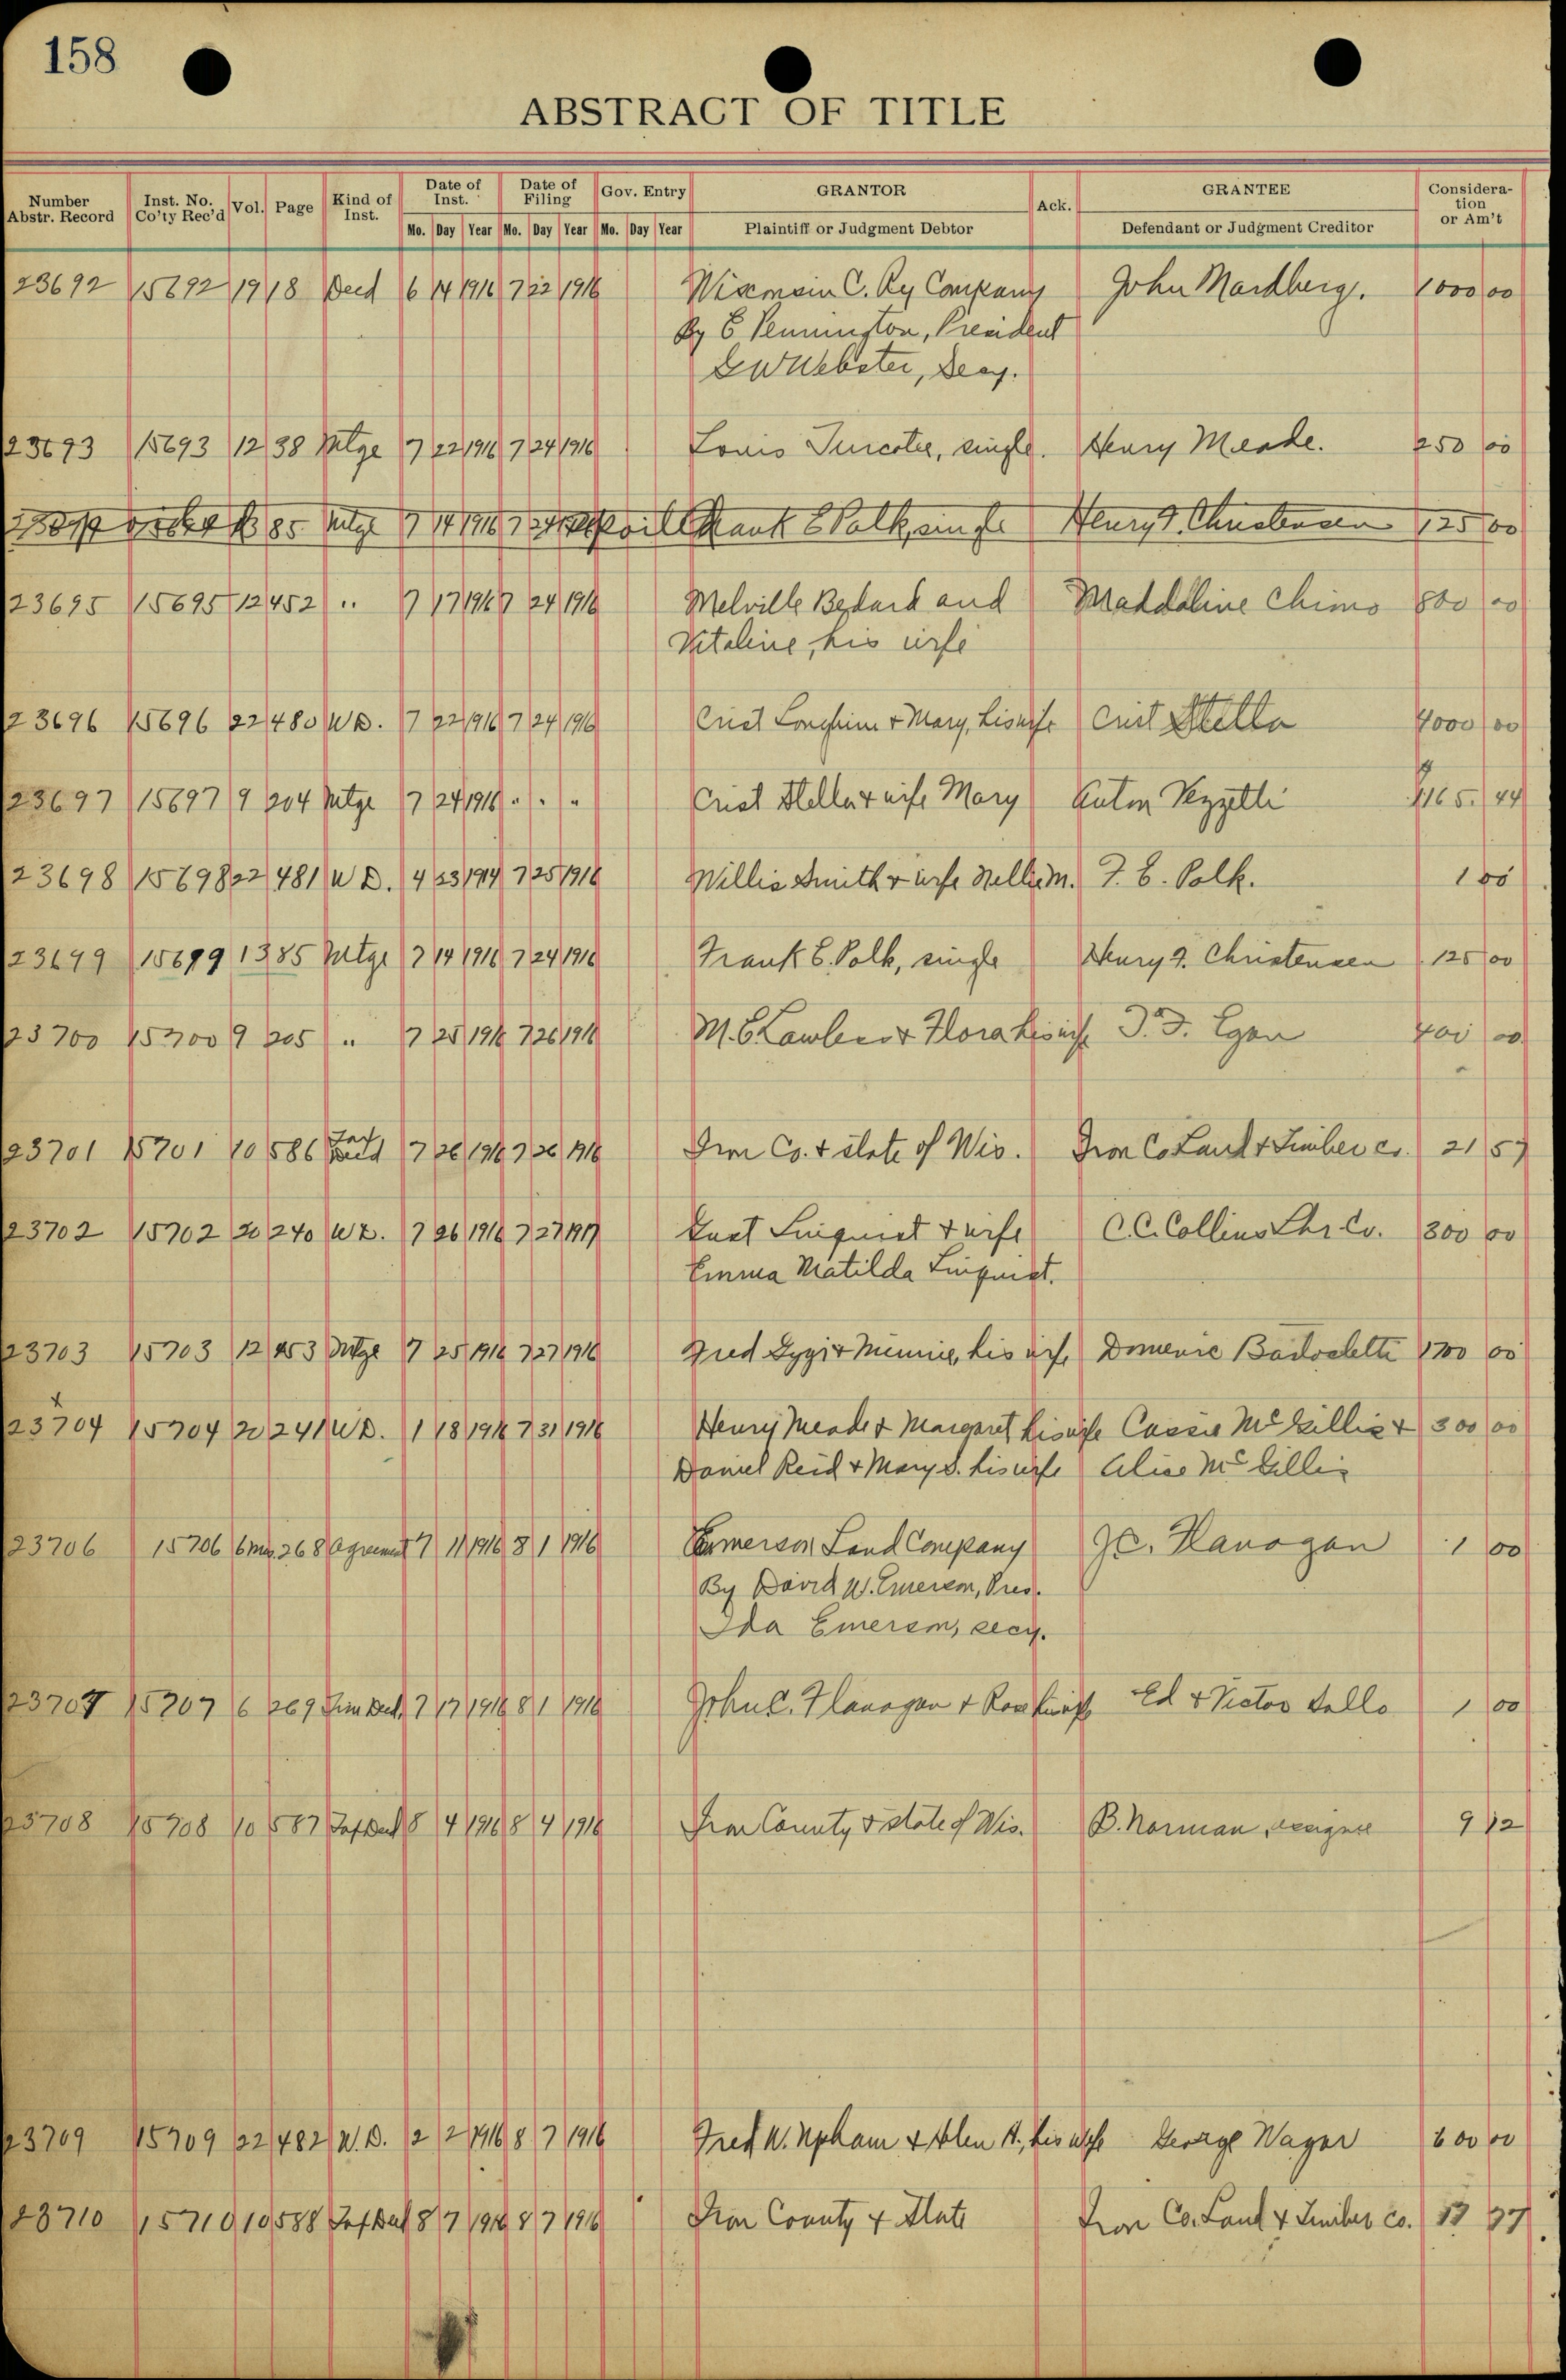 158
ABSTRACT OF TITLE
Number Abstr. Record Inst. No. Co'ty Rec'd Vol. Page Kind of Inst. Date of Inst. Date of Filing Gov. Entry GRANTOR Ack. GRANTEE Considera-tion or Am't
Mo. Day Year Mo. Day Year Mo. Day Year Plaintiff or Judgment Debtor Defendant or Judgment Creditor
23692 15692 19 18 Deed 6 14 1916 7 22 1916 Wisconsin C. Ry Company John Mardberg. 1000 00
By E Pennington, President
G W Webster, Secy.
23693 15693 12 38 Mtge 7 22 1916 7 24 1916 Louis Turcotte, single. Henry Meade. 250 00
85 Mtge 7 14 1916 7 24 Frank E Polk, single Henry F. Christensen 125 00
23695 15695 12 452 " 7 17 1916 7 24 1916 Melville Bedard and Maddaline Chimo 800 00
Vitaline, his wife
23696 15696 22 480 W D. 7 22 1916 7 24 1916 Crist & Mary, his wife Crist Stella 4000 00
23697 15697 9 204 Mtge 7 24 1916 " " " Crist Stella & wife Mary Anton Vezzetti 1165. 44
23698 15698 22 481 W D. 4 23 1914 7 25 1916 Willis Smith & wife Nellie M. F. E. Polk. 1 00
23699 15699 13 85 Mtge 7 14 1916 7 24 1916 Frank E. Polk, single Henry F. Christensen 125 00
23700 15700 9 205 " 7 25 1916 7 26 1916 M. E. Lawless & Flora his wife 400 00
23701 15701 10 586 Tax Deed 7 26 1916 7 26 1916 Iron Co. & State of Wis. Iron Co Land & Timber co. 21 57
23702 15702 20 240 W D. 7 26 1916 7 27 1917 Linquist & wife C. C. Collins Lbr. Co. 300 00
Emma Matilda Linquist.
23703 15703 12 453 Mtge 7 25 1916 7 27 1916 Fred & Minnie, his wife Domenic 1700 00
23704 15704 20 241 W D. 1 18 1916 7 31 1916 Henry Meade & Margaret his wife Cassie McGillis & 300 00
Daniel Reid & Mary S. his wife Alice McGillis
23706 15706 6 Mis. 268 Agreement 7 11 1916 8 1 1916 Emerson Land Company J C. Flanagan 1 00
By David W. Emerson, Pres.
Ida Emerson, secy.
23707 15707 6 269 7 17 1916 8 1 1916 John C. Flanagan & Rose his wife Ed & Victor 1 00
23708 15708 10 587 Tax Deed 8 4 1916 8 4 1916 Iron County & State of Wis. B. Norman, assignee 9 12
23709 15709 22 482 W. D. 2 2 1916 8 7 1916 Fred W. Upham & Helen H., his wife George Wagar 600 00
23710 15710 10 588 Tax Deed 8 7 1916 8 7 1916 Iron County & State Iron Co. Land & Timber co. 37